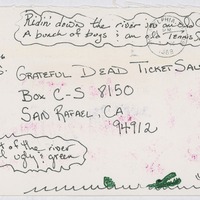 Ridin' down the river in an old C
A bunch of bugs & an old Tennis S
GRATEFUL DEAD TICKET SAL
BOX C-S 8150
SAN RAFAEL, CA
94912
of the river
ugly & green